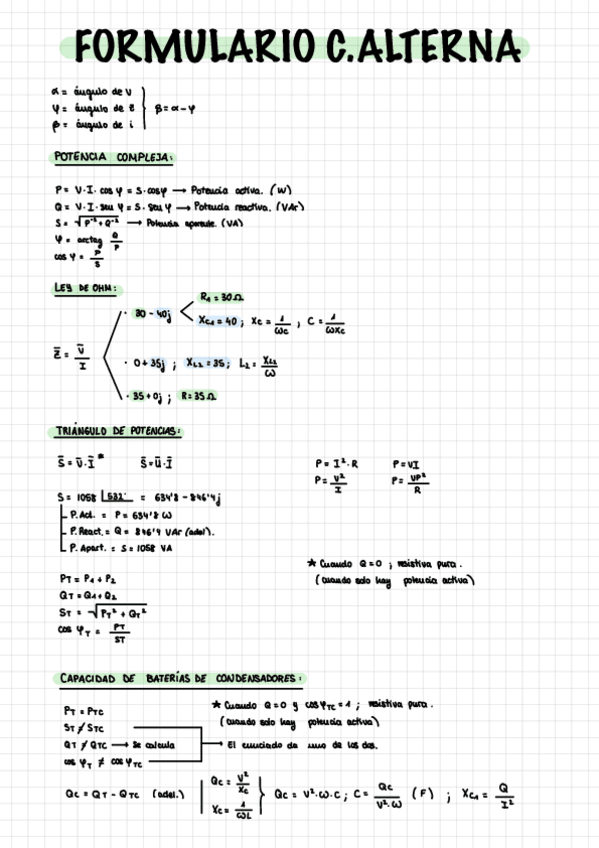 FORMULARIO C.ALTERNA
α = ángulo de V
φ = ángulo de Z̄
β = ángulo de i
β = α - φ
POTENCIA COMPLEJA:
P = V·I·cos φ = S·cosφ → Potencia activa. (W)
Q = V·I·seu φ = S·seu φ → Potencia reactiva. (VAr)
S = √(P² + Q²) → Potencia aparente. (VA)
φ = arctag Q/P
cos φ = P/S
LEY DE OHM:
Z̄ = V̄/I
· 30 - 40j
R₁ = 30Ω
Xc₁ = 40 ; Xc = 1/ωc , C = 1/ωxc
· 0 + 35j ; XL₂ = 35 ; L₂ = XL₂/ω
· 35 + 0j ; R = 35Ω
TRIÁNGULO DE POTENCIAS:
S̄ = V̄·Ī* S̄ = Ū·Ī
P = I²·R P = VI
P = V²/I P = VP²/R
S = 1058 |532° = 634'8 - 846'4j
P. Act. = P = 634'8 W
P. React. = Q = 846'4 VAr (adel).
P. Apart. = S = 1058 VA
* Cuando Q = 0 ; resistiva pura.
(cuando solo hay potencia activa)
PT = P₁ + P₂
QT = Q₁ + Q₂
ST = √(PT² + QT²)
cos φT = PT/ST
CAPACIDAD DE BATERÍAS DE CONDENSADORES:
PT = PTC
ST ≠ STC
QT ≠ QTC → Se calcula
cos φT ≠ cos φTC
* Cuando Q = 0 y cos φTC = 1 ; resistiva pura.
(cuando solo hay potencia activa)
→ El enunciado da uno de los dos.
QC = QT - QTC (adel.)
QC = V²/XC
XC = 1/ωL
QC = V²·ω·C ; C = QC/V²·ω (F) ; XC₁ = Q/I²